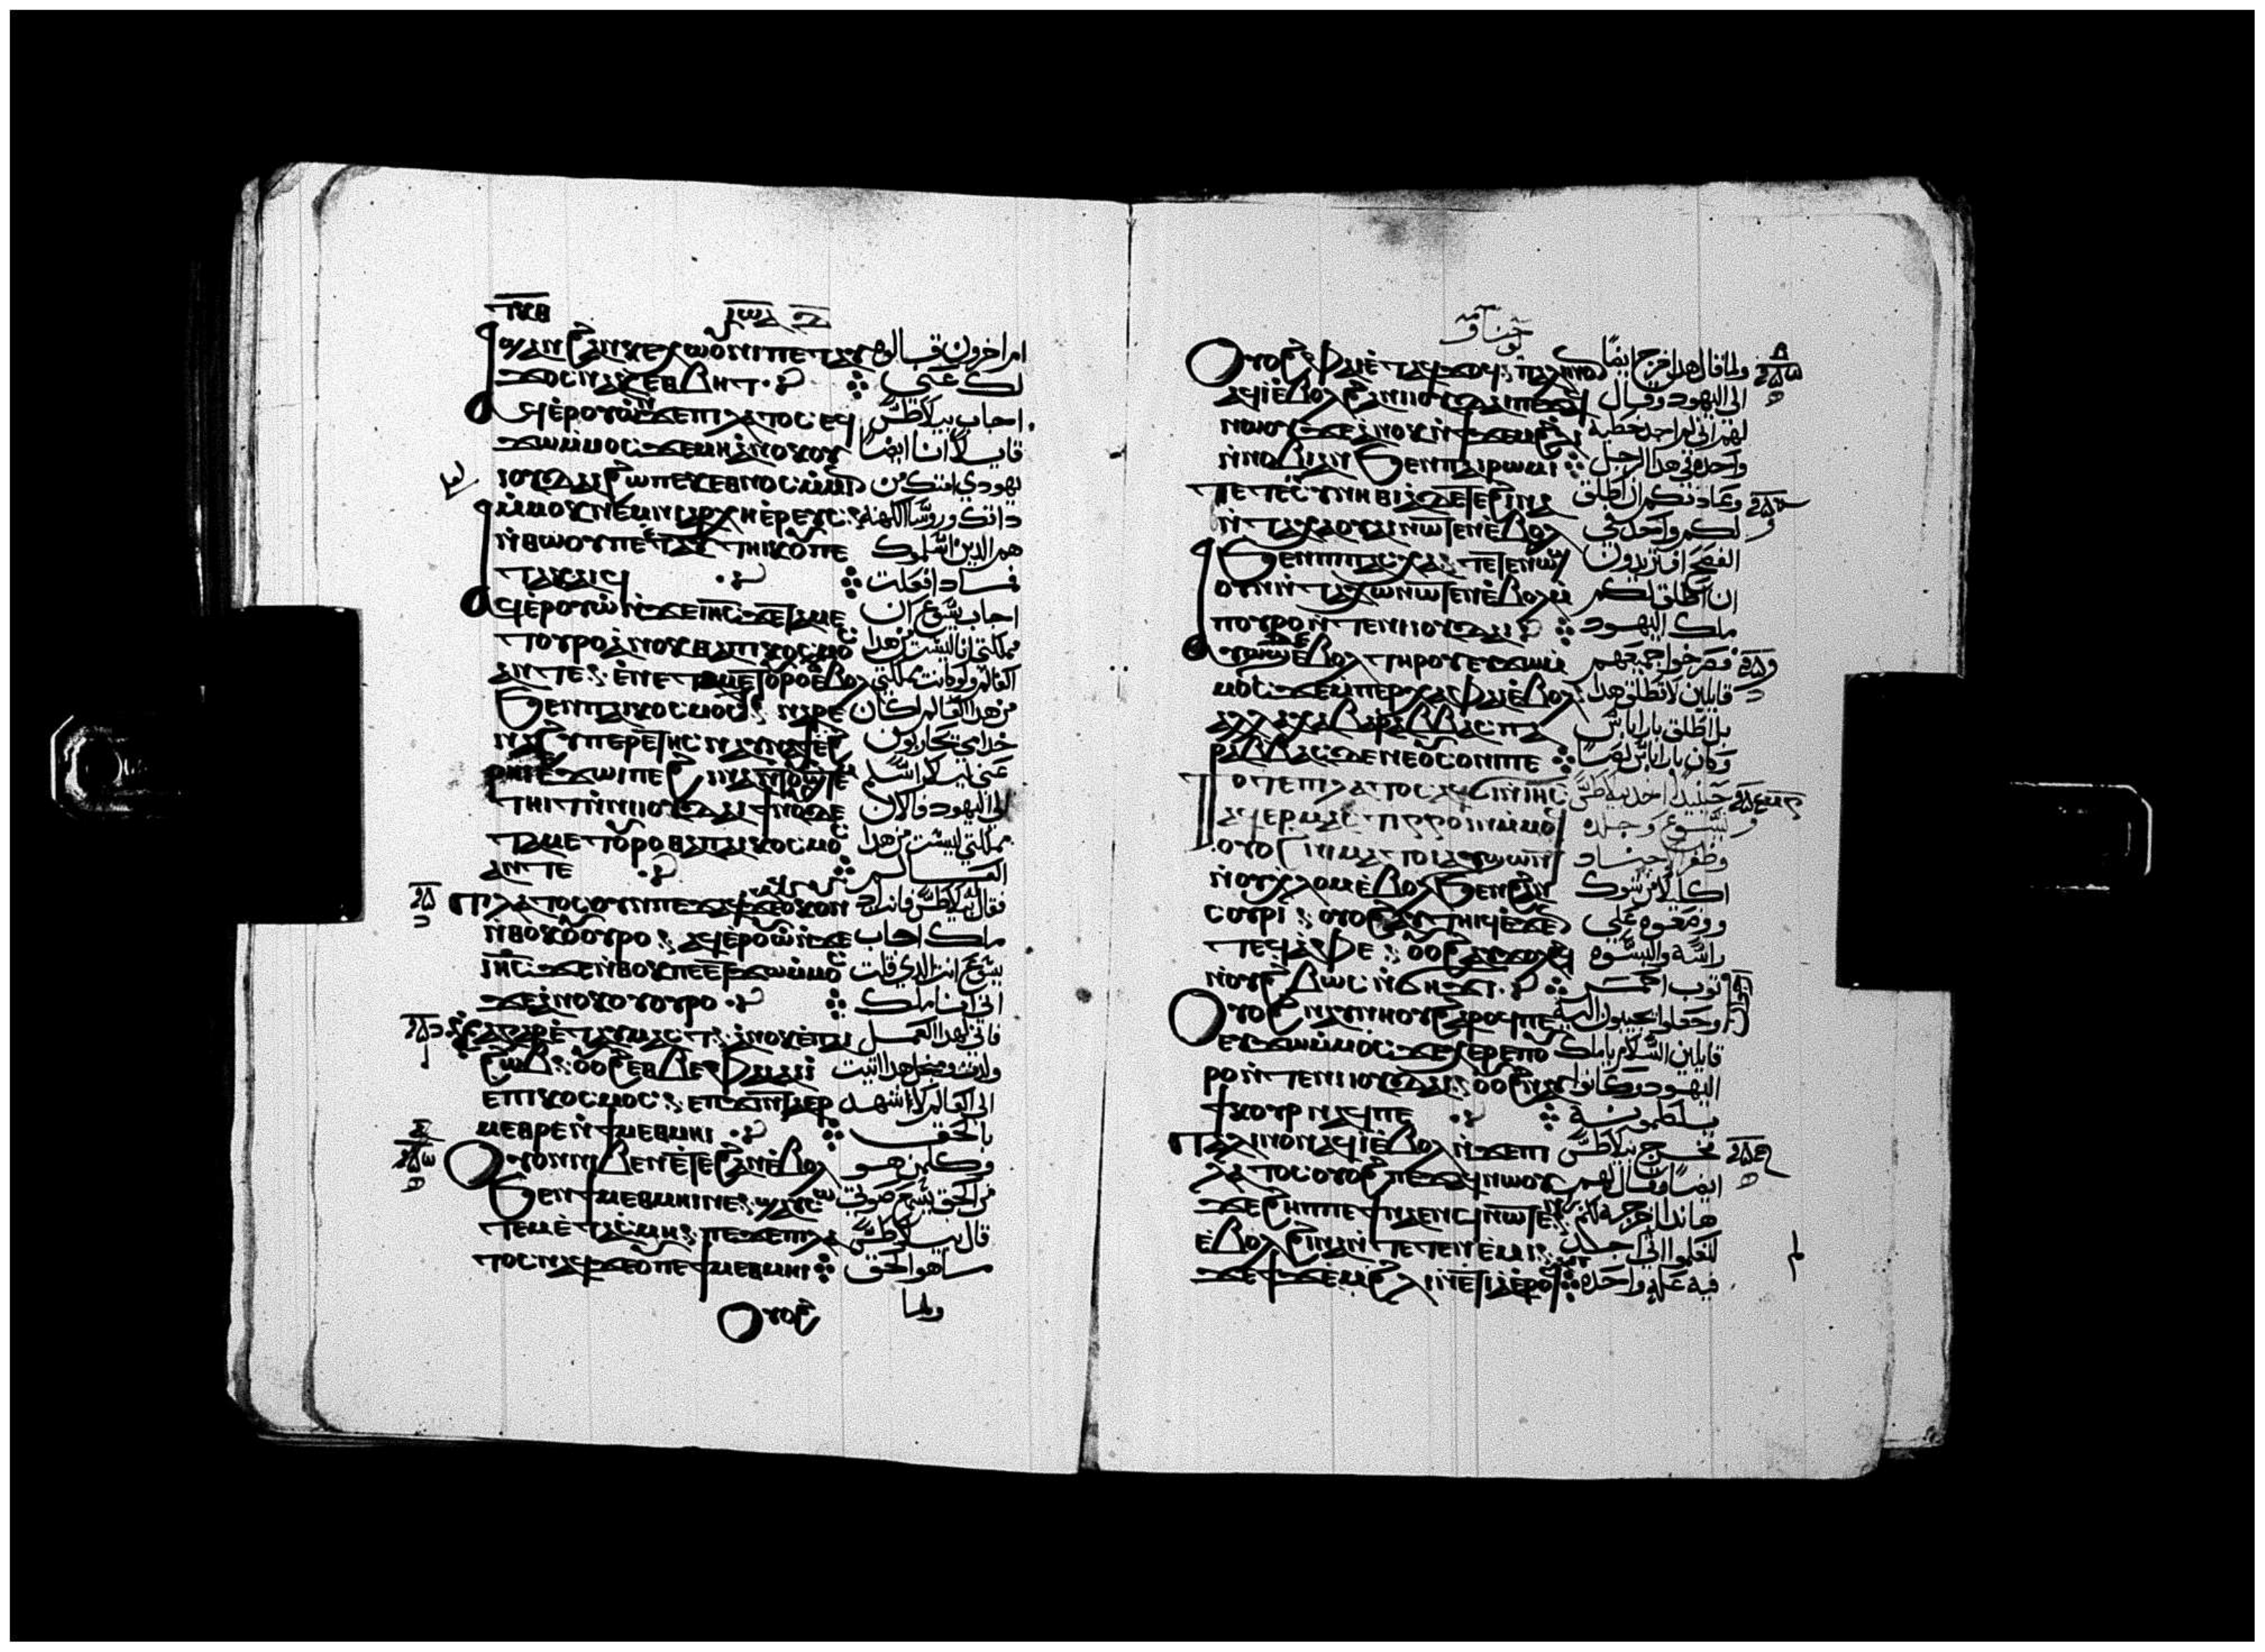 ϣⲁⲛ ϩⲁⲛⲕⲉⲭⲱⲟⲩⲛⲓ ⲡⲉⲧⲁⲩ ام اخرون قالوه
ϫⲟⲥ ⲛⲁⲕ ⲉⲑⲃⲏⲧ ⁘ لك عني
ⲁϥⲉⲣⲟⲩⲱ ⲛϫⲉⲡⲓⲗⲁⲧⲟⲥ ⲉϥ اجاب بيلاطس
ϫⲱⲙⲙⲟⲥ ϫⲉⲙⲏ ⲁⲛⲟⲕ ⲟⲩ قايلا أنا ايضا
ⲓⲟⲩⲇⲁⲓ ϩⲱ ⲡⲉⲕⲉⲑⲛⲟⲥ ⲙⲙⲓⲛ يهودي امتك من
ⲙⲙⲟⲕ ⲛⲉⲙ ⲛⲓⲁⲣⲭⲏⲉⲣⲉⲩⲥ داتك وروسا الكهنه
ⲛⲑⲱⲟⲩ ⲡⲉⲧⲁⲩⲧⲏⲓⲕ ⲟⲩ ⲡⲉ هم الدين اسلموك
ⲧⲁⲕⲁⲓϥ ⁘ فمادا فعلت
ⲁϥⲉⲣⲟⲩⲱ ⲛϫⲉⲓⲏⲥ ϫⲉⲧⲁⲙⲉ اجاب يسوع ان
ⲧⲟⲩⲣⲟ ⲁⲛⲟⲕ ⲑⲁ ⲡⲁⲓⲕⲟⲥⲙⲟⲥ مملكتي انا ليست من هدا
ⲁⲛ ⲧⲉ ⲉⲛⲉ ⲧⲁⲙⲉⲧⲟⲩⲣⲟ ⲉⲃⲟⲗ العالم ولو كانت مملكتي
ϧⲉⲛ ⲡⲁⲓⲕⲟⲥⲙⲟⲥ ⲛⲁⲣⲉ من هدا العالم لكان
ⲛⲁϩⲩⲡⲉⲣⲉⲧⲏⲥ ⲛⲁⲛⲁϯ ⲉϩ خدامي يحاربون
ⲣⲏⲓ ⲉϫⲱⲓ ⲡⲉ ϩⲓⲛⲁ ⲛⲧⲟⲩϣⲧⲉⲙ عني ليلا اسلم
ⲧⲏⲓⲧ ⲛⲛⲓⲓⲟⲩⲇⲁⲓ ϯⲛⲟⲩ ⲇⲉ الى اليهود فالان
ⲧⲁⲙⲉⲧⲟⲩⲣⲟ ⲑⲁ ⲡⲁⲓⲕⲟⲥⲙⲟⲥ مملكتي ليست من هدا
ⲁⲛ ⲧⲉ ⁘ العالم
ⲡⲓⲗⲁⲧⲟⲥ ⲟⲩⲛ ⲡⲉϫⲁϥ ϫⲉⲟⲩⲕⲟⲩⲛ فقال له بيلاطس فانت ادا
ⲛⲑⲟⲕ ⲟⲩⲟⲩⲣⲟ ⲁϥⲉⲣⲟⲩⲱ ⲛϫⲉ ملك اجاب
ⲓⲏⲥ ϫⲉⲛⲑⲟⲕ ⲡⲉⲧϫⲱⲙⲙⲟⲥ يسوع انت الدي قلت
ϫⲉⲁⲛⲟⲕ ⲟⲩⲟⲩⲣⲟ ⁘ اني انا ملك
ⲁⲛⲟⲕ ⲉⲡⲁⲓ فاني لهدا العمل
ϩⲱⲃ ⲟⲩⲟϩ ⲉⲑⲃⲉ ⲫⲁⲓ ⲁⲓⲓ ولدت ومن اجل هدا اتيت
ⲉⲡⲓⲕⲟⲥⲙⲟⲥ ⲉⲡϫⲓⲛⲧⲁⲉⲣ الى العالم لاشهد
ⲙⲉⲑⲣⲉ ⲛϯⲙⲉⲑⲙⲏⲓ ⁘ بالحق
ⲟⲩⲟⲛ ⲛⲓⲃⲉⲛ ⲉⲧⲉ ϩⲁⲛⲉⲃⲟⲗ وكلمن هو
ϧⲉⲛ ϯⲙⲉⲑⲙⲏⲓ ⲛⲉ ϣⲁⲩⲥⲱ من الحق يسمع صوتي
ⲧⲉⲙ ⲉⲧⲁⲥⲙⲏ ⲡⲉϫⲉⲡⲓⲗⲁ قال بيلاطس
ⲧⲟⲥ ⲛⲁϥ ϫⲉⲟⲩ ⲡⲉ ϯⲙⲉⲑⲙⲏⲓ ⁘ ما هو الحق
ⲟⲩⲟϩ ولما
ⲟⲩⲟϩ ⲫⲁⲓ ⲉⲧⲁϥϫⲟϥ ⲡⲁⲗⲓⲛ ⲟⲛ ولما قال هدا خرج ايضا
ⲁϥⲓ ⲉⲃⲟⲗ ϩⲁ ⲛⲓⲓⲟⲩⲇⲁⲓ ⲡⲉϫⲁϥ الى اليهود وقال
ⲛⲱⲟⲩ ϫⲉⲁⲛⲟⲕ ⲛϯϫⲉⲙ ϩⲗⲓ لهم اني لم اجد خطية
ⲛⲛⲟⲃⲓ ⲁⲛ ϧⲉⲛ ⲡⲁⲓⲣⲱⲙⲓ ⁘ واحدة في هدا الرجل
ⲧⲉⲧⲉⲛⲥⲩⲛⲏⲑⲓⲁ ⲇⲉ ⲧⲉ ϩⲓⲛⲁ وعادتكم ان اطلق
ⲛⲧⲁⲭⲁ ⲟⲩⲁⲓ ⲛⲱⲧⲉⲛ ⲉⲃⲟⲗ لكم واحد في
ϧⲉⲛ ⲡⲓⲡⲁⲥⲭⲁ ⲧⲉⲧⲉⲛⲟⲩⲱϣ الفصح افتريدون
ⲟⲩⲛ ⲛⲧⲁⲭⲱ ⲛⲱⲧⲉⲛ ⲉⲃⲟⲗ ⲙ ان اطلق لكم
ⲡⲟⲩⲣⲟ ⲛⲧⲉ ⲛⲓⲓⲟⲩⲇⲁⲓ ⁘ ملك اليهود
ⲁⲩⲱϣ ⲉⲃⲟⲗ ⲧⲏⲣⲟⲩ ⲉⲩϫⲱⲙ فصرخوا جميعهم
ⲙⲟⲥ ϫⲉⲙⲡⲉⲣⲭⲁ ⲫⲁⲓ ⲉⲃⲟⲗ قايلين لا تطلق هدا
ⲁⲗⲗⲁ ⲭⲁ ⲃⲁⲣⲁⲃⲃⲁⲥ ⲡⲁ بل اطلق باراباس
ⲣⲁⲃⲃⲁⲥ ⲇⲉ ⲛⲉ ⲟⲩⲥⲟⲛⲓ ⲡⲉ ⁘ وكان باراباس لصا
ⲧⲟⲧⲉ ⲡⲓⲗⲁⲧⲟⲥ ⲁϥϭⲓ ⲛⲓⲏⲥ حينيد اخد بيلاطس
ⲁϥⲉⲣⲙⲁⲥⲧⲓⲅⲅⲟⲓⲛ ⲙⲙⲟϥ يسوع وجلده
ⲟⲩⲟϩ ⲛⲓⲙⲁⲧⲟⲓ ⲁⲩϣⲱⲛⲧ وظفر الاجناد
ⲛⲟⲩⲭⲗⲟⲙ ⲉⲃⲟⲗ ϧⲉⲛ ϩⲁⲛ اكليلا من شوك
ⲥⲟⲩⲣⲓ ⲟⲩⲟϩ ⲁⲩⲧⲏⲓϥ ⲉϫⲉⲛ ووضعوه على
ⲧⲉϥⲁⲫⲉ ⲟⲩⲟϩ ⲁⲩϫⲟⲗϩϥ راسه والبسوه
ⲛⲟⲩϩⲃⲱⲥ ⲛϭⲏϫⲓ ⁘ توب احمر
ⲟⲩⲟϩ ⲛⲁⲩⲛⲏⲟⲩ ϩⲁⲣⲟϥ ⲡⲉ وجعلوا يجيون اليه
ⲉⲩϫⲱⲙⲙⲟⲥ ϫⲉⲭⲉⲣⲉ ⲡⲟⲩ قايلين السلام يا ملك
ⲣⲟ ⲛⲧⲉ ⲛⲓⲓⲟⲩⲇⲁⲓ ⲟⲩⲟϩ ⲛⲁⲩ اليهود وكانوا
ϯⲕⲟⲩⲣ ⲛⲁϥ ⲡⲉ ⁘ يلطمونه
ⲡⲁⲗⲓⲛ ⲟⲛ ⲁϥⲓ ⲉⲃⲟⲗ ⲛϫⲉⲡⲓ فخرج بيلاطس
ⲗⲁⲧⲟⲥ ⲟⲩⲟϩ ⲡⲉϫⲁϥ ⲛⲱⲟⲩ ايضا وقال لهم
ϫⲉϩⲏⲡⲡⲉ ϯⲛⲁⲉⲛϥ ⲛⲱⲧⲉⲛ هاندا اخرجه لكم
ⲉⲃⲟⲗ ϩⲓⲛⲁ ⲛⲧⲉⲧⲉⲛⲉⲙⲓ لتعلموا اني اجد
ϫⲉϯϫⲉⲙ ϩⲗⲓ ⲛⲉⲧⲓⲁ ⲉⲣⲟϥ ⁘ فيه علة واحدة